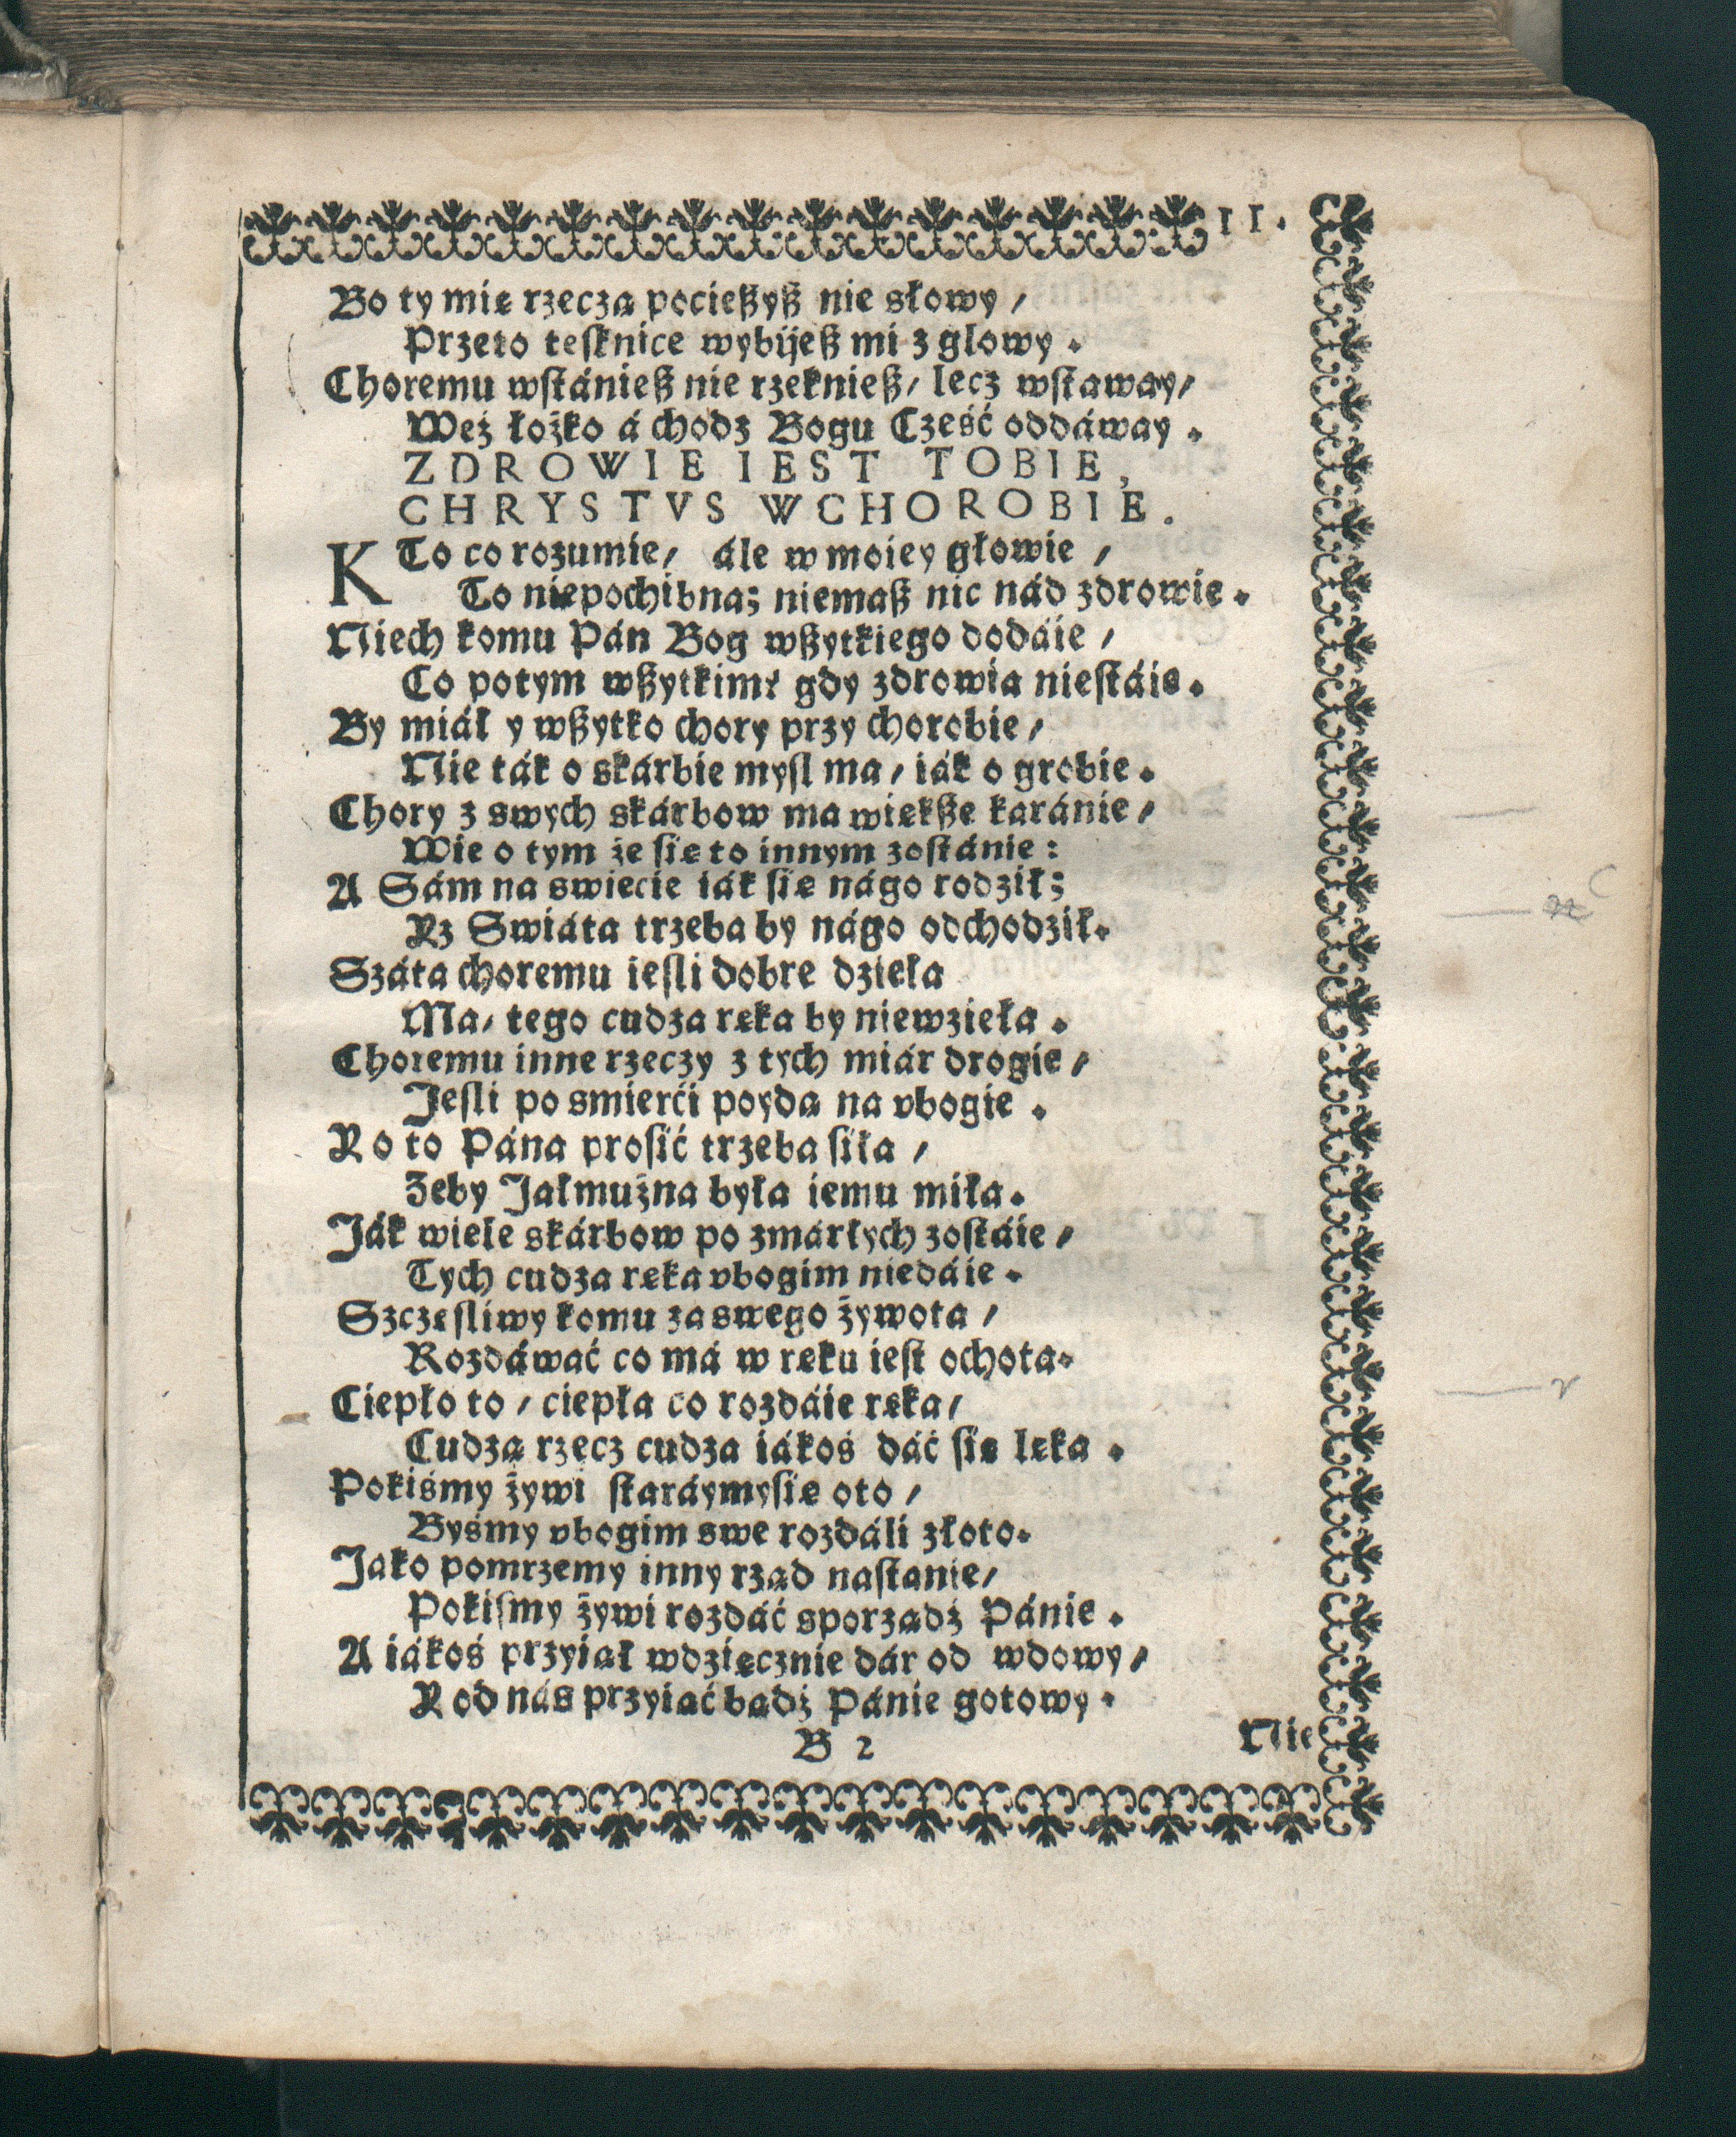 11.
Bo ty mię rzeczą pocießyß nie słowy /
Przeto tesknice wybijeß mi z glowy.
Choremu wstánieß nie rzeknieß / lecz wstaway /
Weź łożko á chodz Bogu Cześć oddáway.
ZDROWIE IEST TOBIE,
CHRYSTVS W CHOROBIE.
KTo co rozumie / ále w moiey głowie /
To niepochibna; niemaß nic nád zdrowie.
Niech komu Pán Bog wßytkiego dodáie /
Co potym wßytkim? gdy zdrowia niestáie.
By miáł y wßytko chory przy chorobie /
Nie ták o skárbie mysl ma / iák o grobie.
Chory z swych skárbow ma większe karánie /
Wie o tym że się to innym zostánie:
A Sám na swiecie iák się nágo rodził;
Yz Swiáta trzeba by nágo odchodził.
Száta choremu iesli dobre dzieła
Ma / tego cudza ręka by niewzięła.
Choremu inne rzeczy z tych miár drogie /
Jesli po smierći poydą na vbogie.
Y o to Pána prosić trzeba siła /
Zeby Jałmużna była iemu miła.
Ják wiele skárbow po zmárłych zostáie /
Tych cudza ręka vbogim niedáie.
Szczęsliwy komu za swego żywota /
Rozdáwać co má w ręku iest ochota.
Ciepło to / ciepła co rozdáie ręka /
Cudzą rzecz cudza iákoś dáć się lęka.
Pokiśmy żywi staráymysię oto /
Byśmy vbogim swe rozdáli złoto.
Jako pomrzemy inny rząd nastanie /
Pokismy żywi rozdáć sporządź Pánie.
A iákoś przyiął wdzięcznie dár od wdowy /
Y od nás przyiąć bądź Pánie gotowy.
B 2
Nie